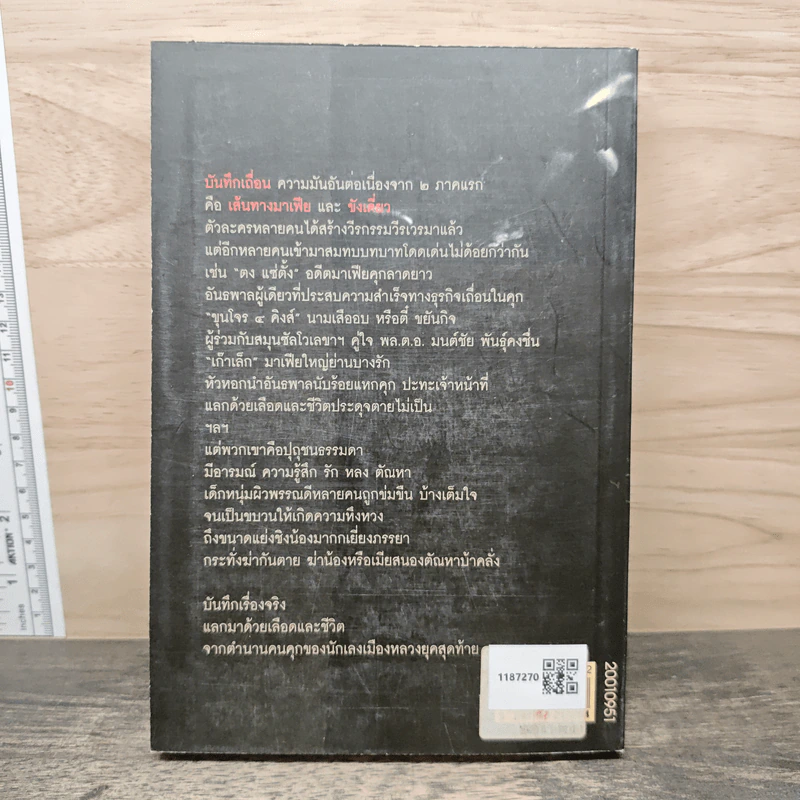 บันทึกเถื่อน ความมันอันต่อเนื่องจาก ๒ ภาคแรก
คือ เส้นทางมาเฟีย และ ขังเดี่ยว
ตัวละครหลายคนได้สร้างวีรกรรมวีรเวรมาแล้ว
แต่อีกหลายคนเข้ามาสมทบบทบาทโดดเด่นไม่ด้อยกว่ากัน
เช่น "ตง แซ่ตั้ง" อดีตมาเฟียคุกลาดยาว
อันธพาลผู้เดียวที่ประสบความสำเร็จทางธุรกิจเถื่อนในคุก
"ขุนโจร ๔ คิงส์" นามเสืออบ หรือตี๋ ขยันกิจ
ผู้ร่วมกับสมุนซัลโวเลขาฯ คู่ใจ พล.ต.อ. มนต์ชัย พันธุ์คงชื่น
"เก๊าเล็ก" มาเฟียใหญ่ย่านบางรัก
หัวหอกนำอันธพาลนับร้อยแหกคุก ปะทะเจ้าหน้าที่
แลกด้วยเลือดและชีวิตประดุจตายไม่เป็น
ฯลฯ
แต่พวกเขาคือปุถุชนธรรมดา
มีอารมณ์ ความรู้สึก รัก หลง ตัณหา
เด็กหนุ่มผิวพรรณดีหลายคนถูกข่มขืน บ้างเต็มใจ
จนเป็นขบวนให้เกิดความหึงหวง
ถึงขนาดแย่งชิงน้องมากกเยี่ยงภรรยา
กระทั่งฆ่ากันตาย ฆ่าน้องหรือเมียสนองตัณหาบ้าคลั่ง
บันทึกเรื่องจริง
แลกมาด้วยเลือดและชีวิต
จากตำนานคนคุกของนักเลงเมืองหลวงยุคสุดท้าย
1187270
20010951